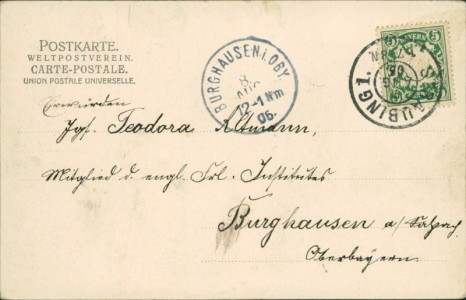 POSTKARTE.
WELTPOSTVEREIN.
CARTE-POSTALE.
UNION POSTALE UNIVERSELLE.
BURGHAUSEN I. OBY.
8
AUG
12-1 Nm
06.
BAYERN
5
STRAUBING 1
Erwürden
Jgf. Teodora Altmann,
Mitglied d. engl. Frl. Institutes
Burghausen a/Salzach
Oberbayern.